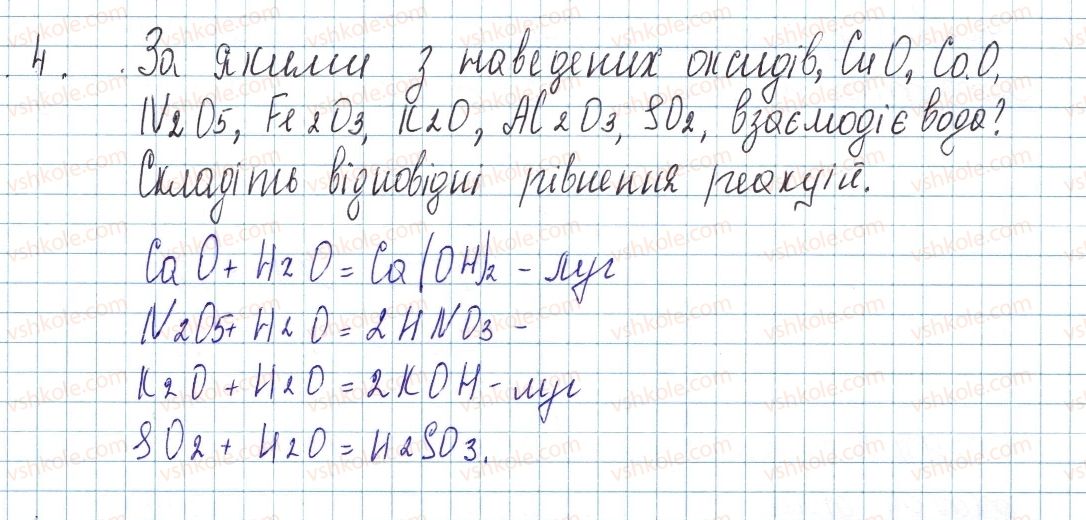 4. За якими з наведених оксидів, CuO, CaO,
N2O5, Fe2O3, K2O, Al2O3, SO2, взаємодіє вода?
Складіть відповідні рівнення реакцій.
CaO + H2O = Ca(OH)2 - луг
N2O5 + H2O = 2HNO3 -
K2O + H2O = 2KOH - луг
SO2 + H2O = H2SO3.